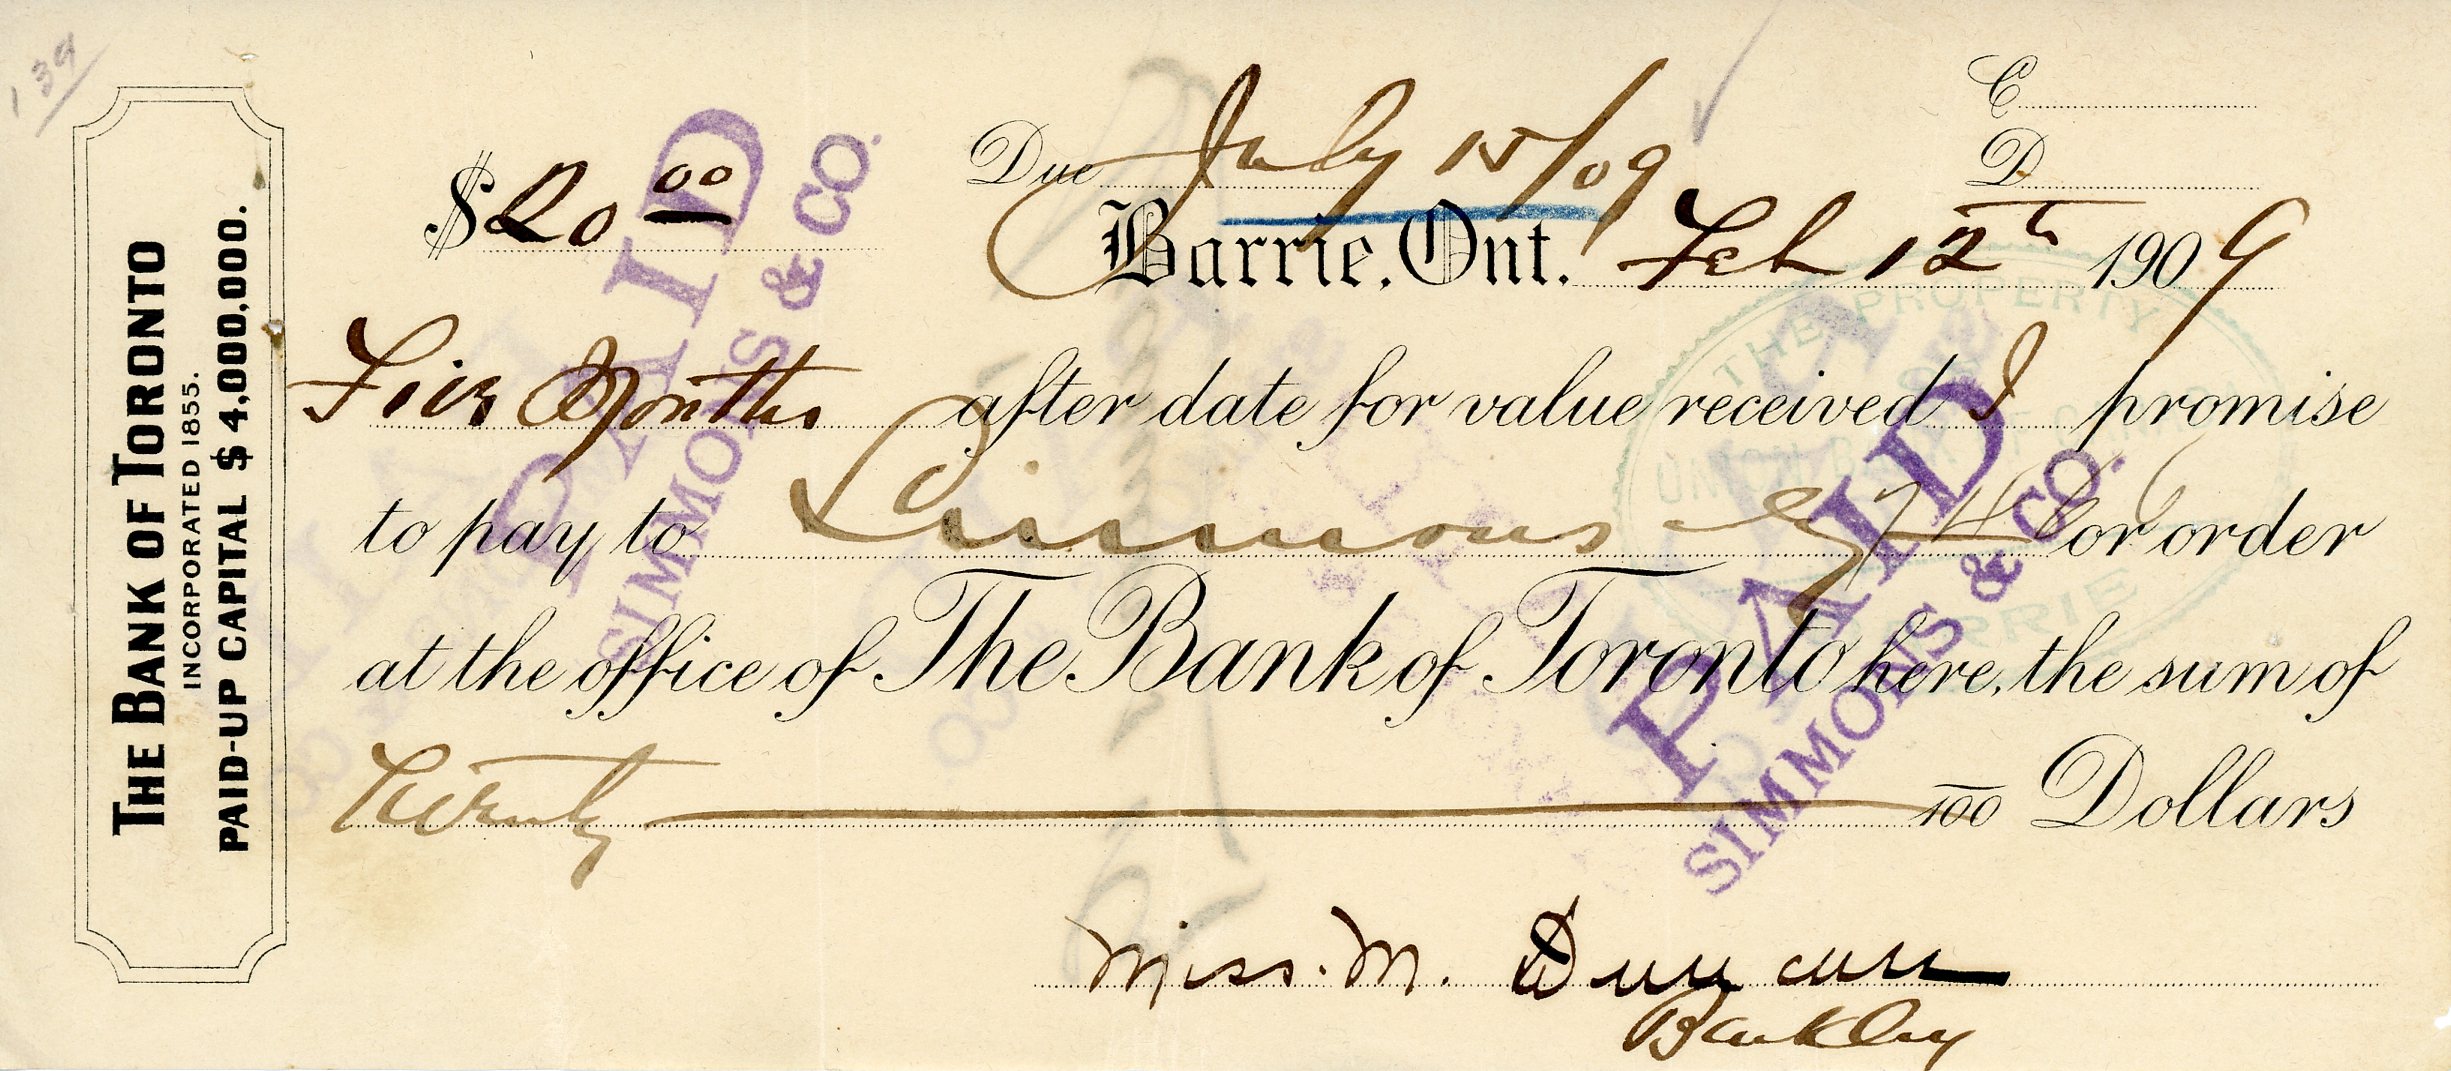 139
THE BANK OF TORONTO
INCORPORATED 1855.
PAID-UP CAPITAL $4,000,000.
C
D
$20 00
Due July 15/09
Barrie, Ont. Feb 12th 1909
Five Months after date for value received I promise
to pay to Simmons & Co or order
at the office of The Bank of Toronto here, the sum of
Twenty 100 Dollars
Miss. M. Duncan
PAID
SIMMONS & CO.
PAID
SIMMONS & CO.
THE PROPERTY
OF
UNION BANK OF CANADA
BARRIE